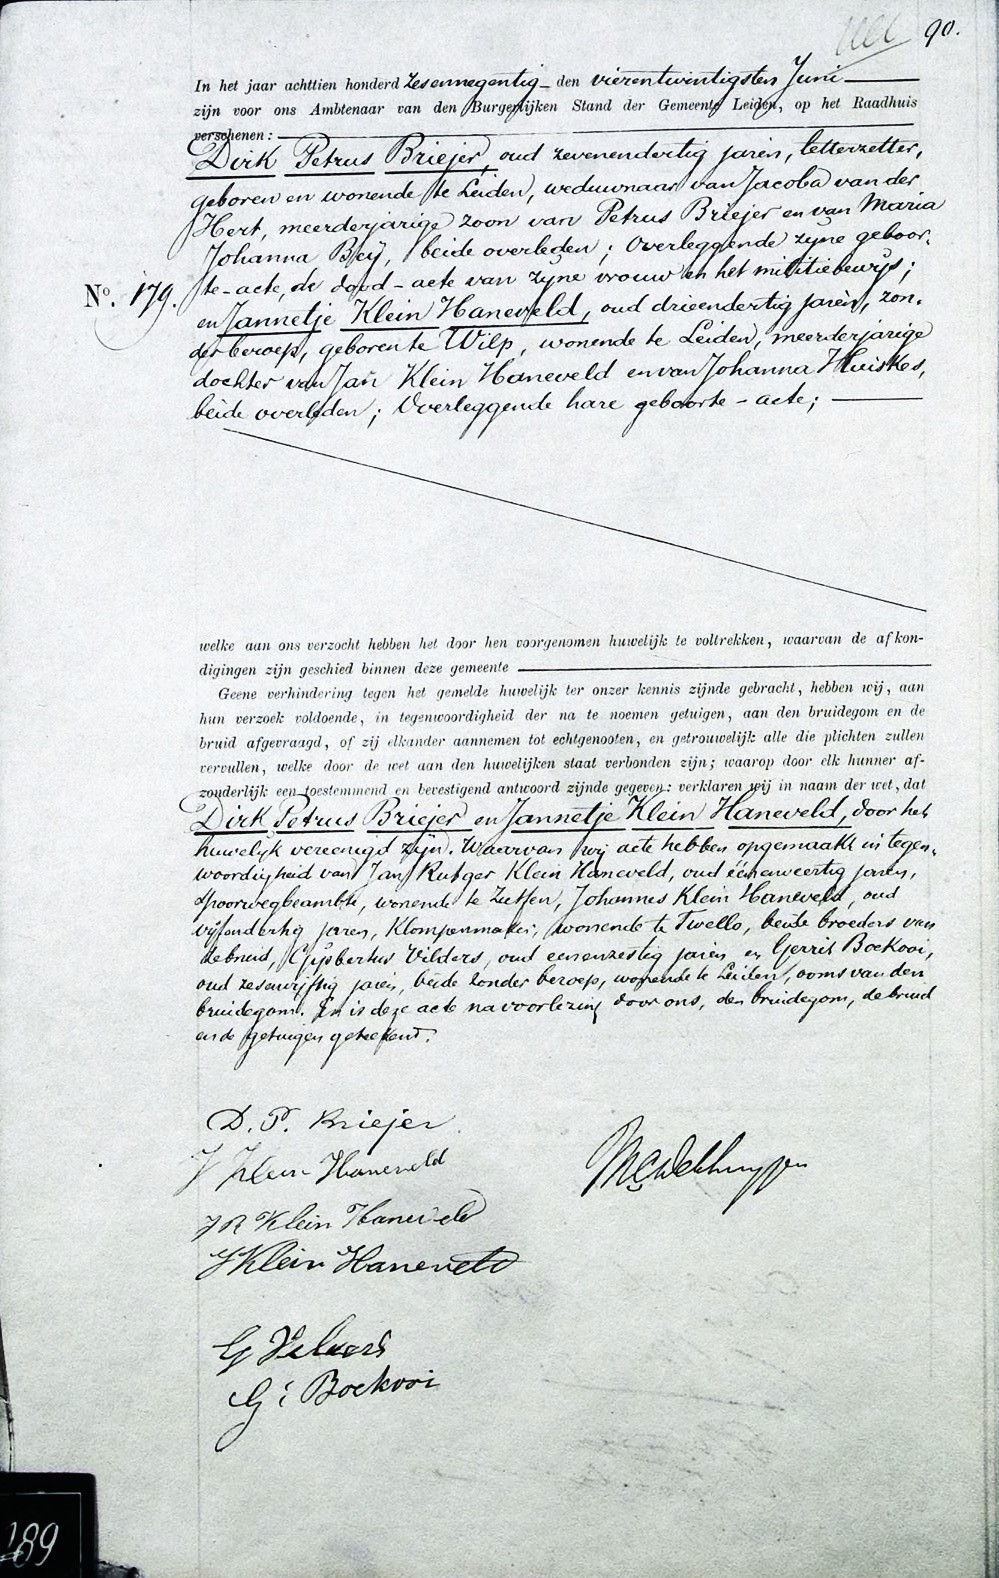 90.
In het jaar achttien honderd zesennegentig – den vierentwintigsten Juni
zijn voor ons Ambtenaar van den Burgerlijken Stand der Gemeente Leiden, op het Raadhuis
verschenen:
Dirk Petrus Briejer, oud zevenendertig jaren, letterzetter,
geboren en wonende te Leiden, weduwnaar van Jacoba van der
Hert, meerderjarige zoon van Petrus Briejer en van Maria
Johanna Beij, beide overleden; Overleggende zijne geboor-
te-acte, de dood-acte van zijne vrouw en het militiebewijs;
No. 179.
en Jannetje Klein Haneveld, oud drieendertig jaren, zon-
der beroep, geboren te Wilp, wonende te Leiden, meerderjarige
dochter van Jan Klein Haneveld en van Johanna Huiskes,
beide overleden; Overleggende hare geboorte-acte;
welke aan ons verzocht hebben het door hen voorgenomen huwelijk te voltrekken, waarvan de afkon-
digingen zijn geschied binnen deze gemeente
Geene verhindering tegen het gemelde huwelijk ter onzer kennis zijnde gebracht, hebben wij, aan
hun verzoek voldoende, in tegenwoordigheid der na te noemen getuigen, aan den bruidegom en de
bruid afgevraagd, of zij elkander aannemen tot echtgenooten, en getrouwelijk alle die plichten zullen
vervullen, welke door de wet aan den huwelijken staat verbonden zijn; waarop door elk hunner af-
zonderlijk een toestemmend en bevestigend antwoord zijnde gegeven: verklaren wij in naam der wet, dat
Dirk Petrus Briejer en Jannetje Klein Haneveld, door het
huwelijk vereenigd zijn. Waarvan wij acte hebben opgemaakt in tegen-
woordigheid van Jan Rutger Klein Haneveld, oud éénenveertig jaren,
spoorwegbeambte, wonende te Zutfen, Johannes Klein Haneveld, oud
vijfendertig jaren, Klompenmaker, wonende te Twello, beide broeders van
de bruid, Gijsbertus Vilders, oud eenenzestig jaren en Gerrit Boekooi,
oud zesenvijftig jaren, beide zonder beroep, wonende te Leiden, ooms van den
bruidegom. En is deze acte na voorlezing door ons, den bruidegom, de bruid
en de getuigen geteekend.
D. P. Briejer
J Klein Haneveld
J R Klein Haneveld
J Klein Haneveld
G Vilders
G: Boekooi
189